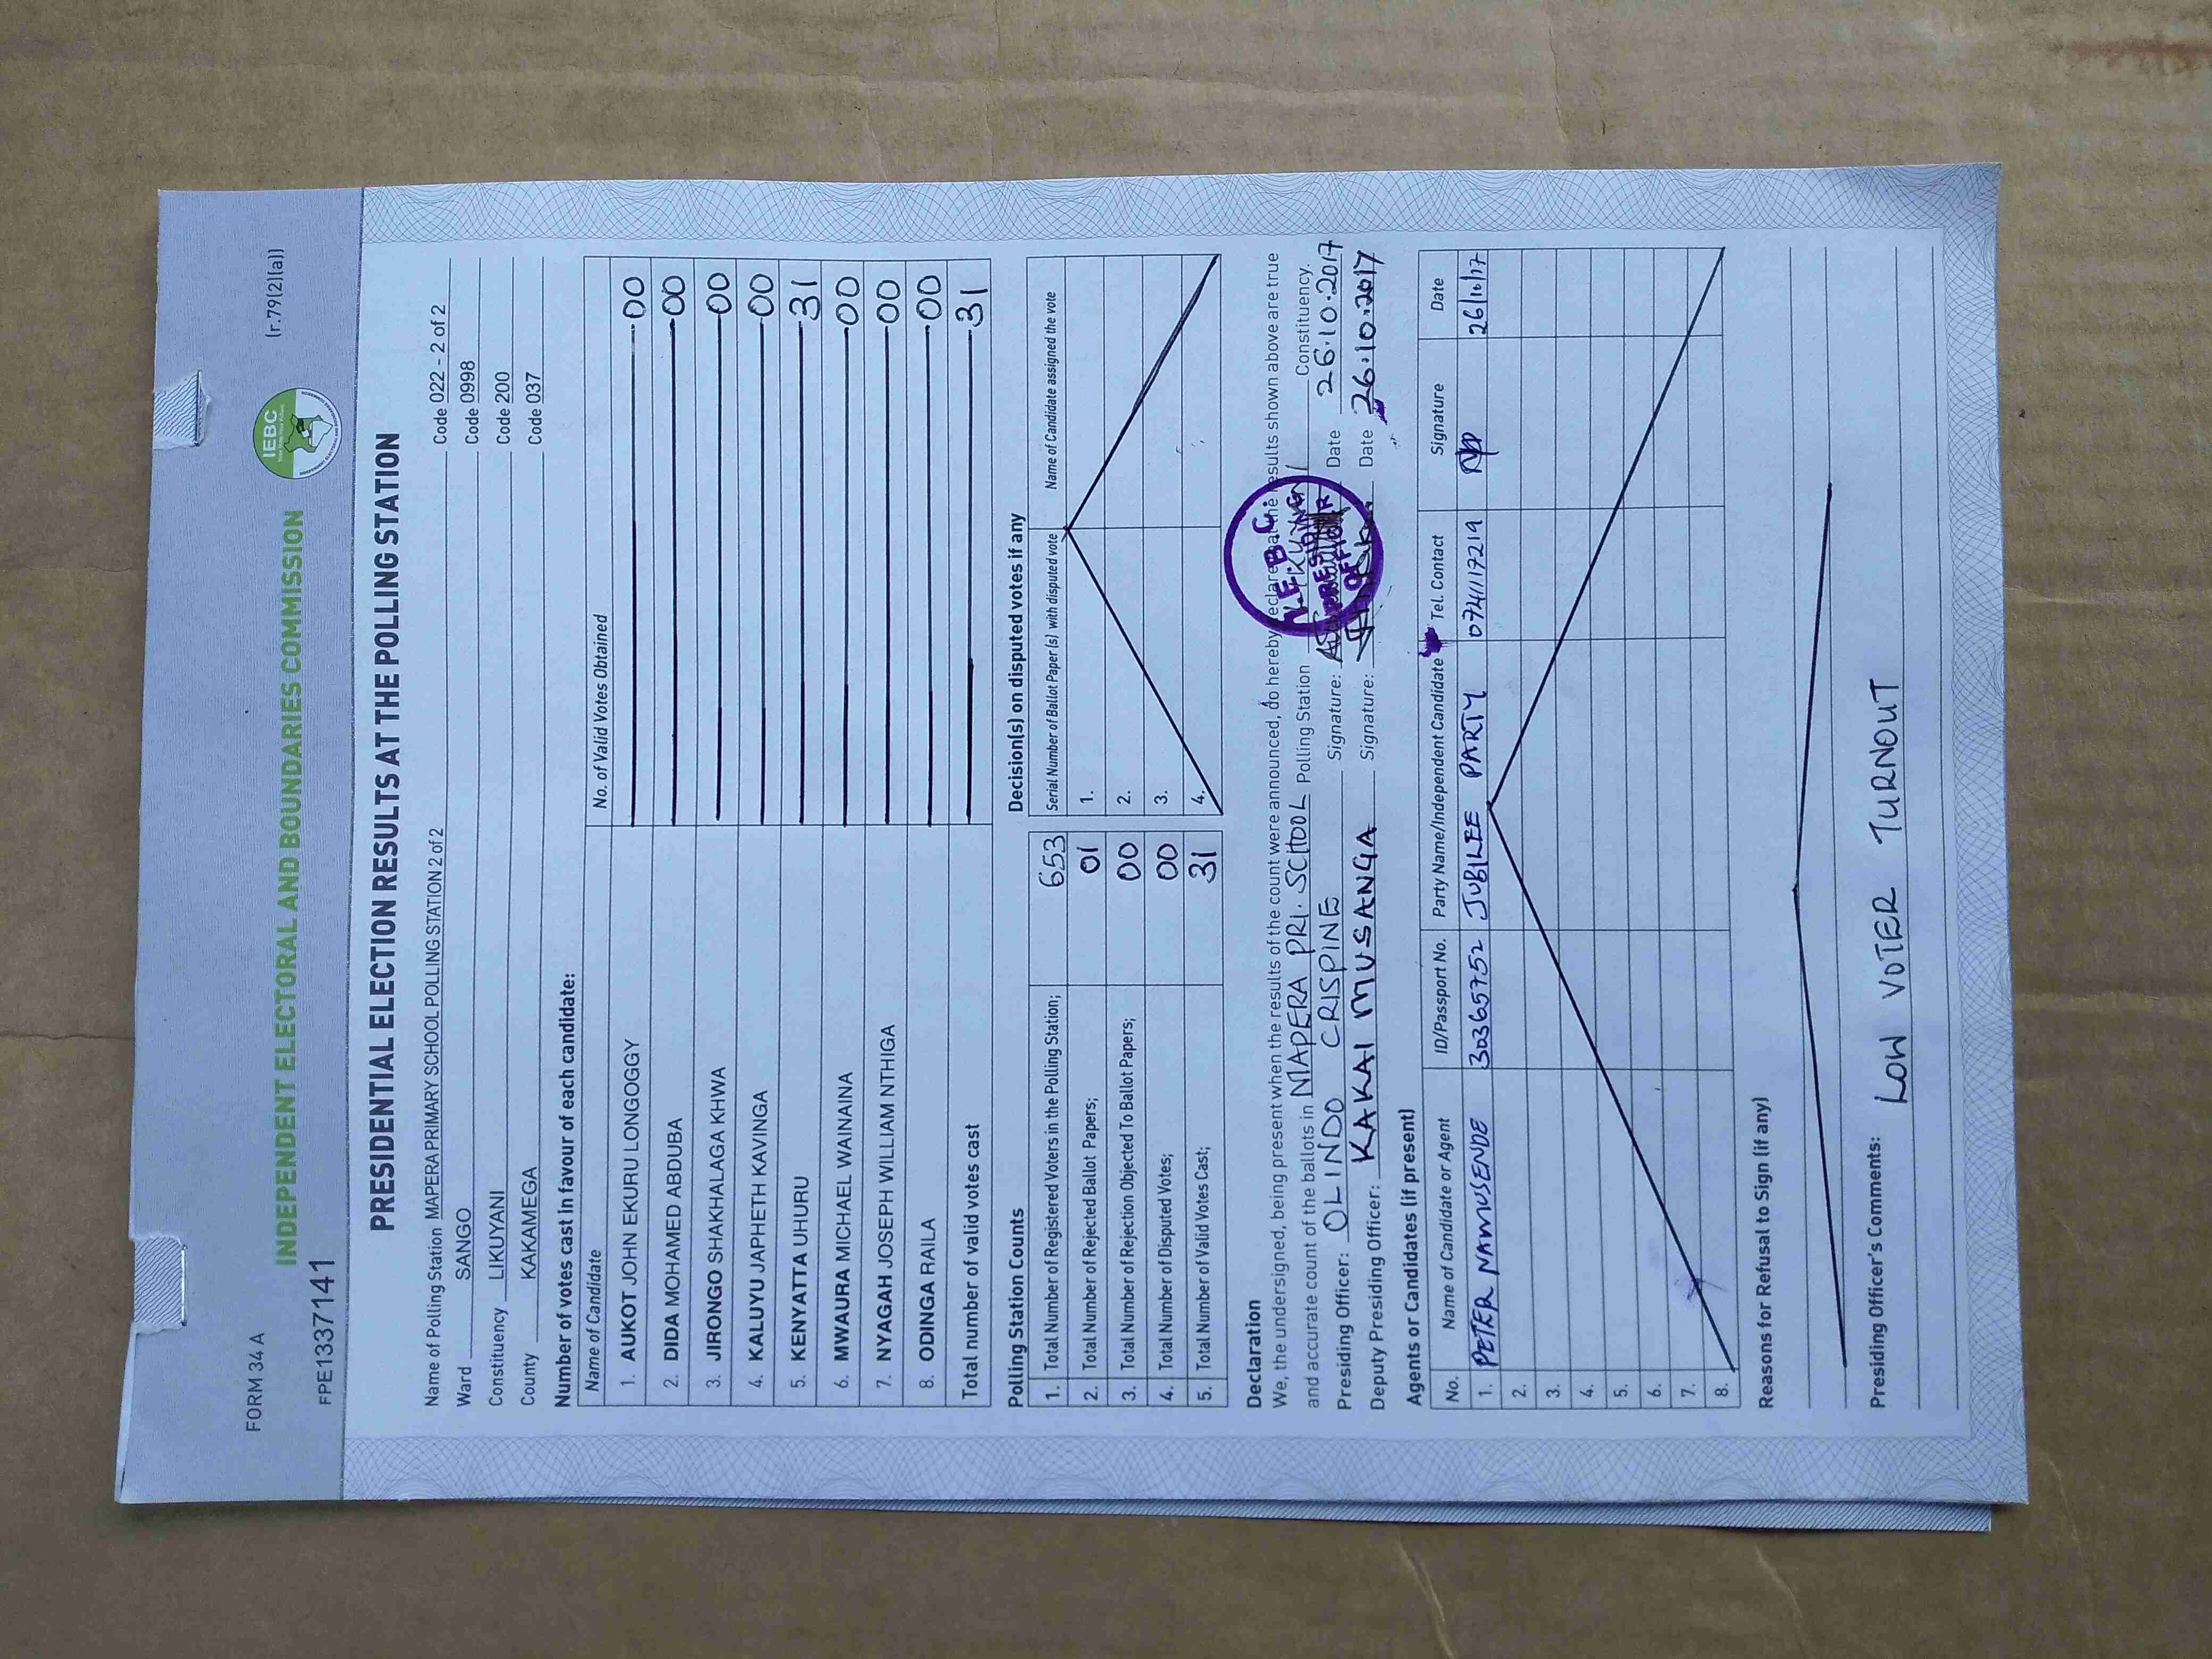 FORM 34 A
(r.79(2)(a))
IEBC
INDEPENDENT ELECTORAL AND BOUNDARIES COMMISSION
FPE1337141
PRESIDENTIAL ELECTION RESULTS AT THE POLLING STATION
Name of Polling Station MAPERA PRIMARY SCHOOL POLLING STATION 2 of 2 Code 022 - 2 of 2
Ward SANGO Code 0998
Constituency LIKUYANI Code 200
County KAKAMEGA Code 037
Number of votes cast in favour of each candidate:
Name of Candidate No. of Valid Votes Obtained
1. AUKOT JOHN EKURU LONGOGGY 00
2. DIDA MOHAMED ABDUBA 00
3. JIRONGO SHAKHALAGA KHWA 00
4. KALUYU JAPHETH KAVINGA 00
5. KENYATTA UHURU 31
6. MWAURA MICHAEL WAINAINA 00
7. NYAGAH JOSEPH WILLIAM NTHIGA 00
8. ODINGA RAILA 00
Total number of valid votes cast 31
Polling Station Counts
1. Total Number of Registered Voters in the Polling Station; 653
2. Total Number of Rejected Ballot Papers; 01
3. Total Number of Rejection Objected To Ballot Papers; 00
4. Total Number of Disputed Votes; 00
5. Total Number of Valid Votes Cast; 31
Decision(s) on disputed votes if any
Serial Number of Ballot Paper(s) with disputed vote Name of Candidate assigned the vote
1.
2.
3.
4.
Declaration
We, the undersigned, being present when the results of the count were announced, do hereby declare that the results shown above are true
and accurate count of the ballots in MAPERA PRI. SCHOOL Polling Station LIKUYANI Constituency.
Presiding Officer: OLINDO CRISPINE Signature: Date 26.10.2017
Deputy Presiding Officer: KAKAI MUSANGA Signature: Date 26.10.2017
I.E.B.C.
PRESIDING
OFFICER
Agents or Candidates (if present)
No. Name of Candidate or Agent ID/Passport No. Party Name/Independent Candidate Tel. Contact Signature Date
1. PETER NAMUSENDE 30365752 JUBILEE PARTY 0741117219 26/10/17
2.
3.
4.
5.
6.
7.
8.
Reasons for Refusal to Sign (if any)
Presiding Officer's Comments: LOW VOTER TURNOUT